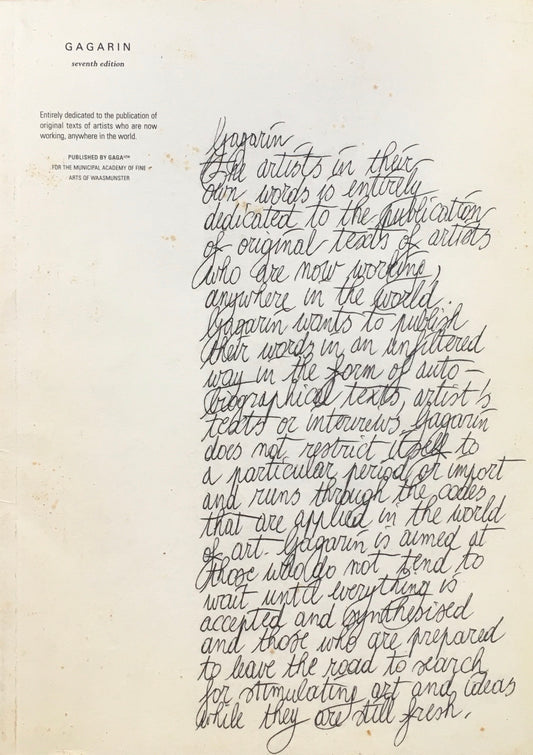 GAGARIN
seventh edition
Entirely dedicated to the publication of
original texts of artists who are now
working, anywhere in the world.
PUBLISHED BY GAGA
FOR THE MUNICIPAL ACADEMY OF FINE
ARTS OF WAASMUNSTER
Gagarin
The artists in their
own words is entirely
dedicated to the publication
of original texts of artists
who are now working,
anywhere in the world.
Gagarin wants to publish
their words in an unfiltered
way in the form of auto-
biographical texts, artist's
texts or interviews. Gagarin
does not restrict itself to
a particular period or import
and runs through the codes
that are applied in the world
of art. Gagarin is aimed at
those who do not tend to
wait until everything is
accepted and synthesised
and those who are prepared
to leave the road to search
for stimulating art and ideas
while they are still fresh.